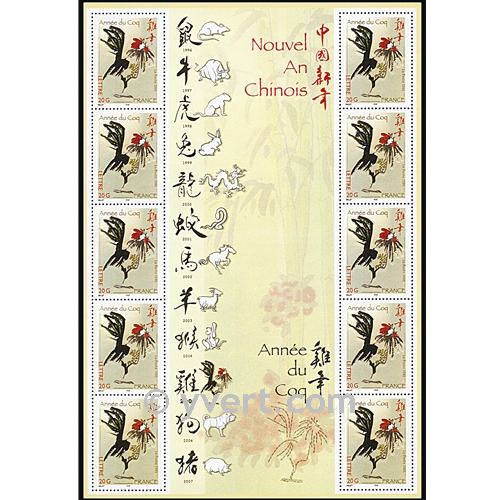 Année du Coq
雞年
LETTRE 20 G
FRANCE
Année du Coq
雞年
LETTRE 20 G
FRANCE
Année du Coq
雞年
LETTRE 20 G
FRANCE
Année du Coq
雞年
LETTRE 20 G
FRANCE
Année du Coq
雞年
LETTRE 20 G
FRANCE
鼠
1996
牛
1997
虎
1998
兔
1999
龍
2000
蛇
2001
馬
2002
羊
2003
猴
2004
雞
狗
2006
豬
2007
Nouvel
An
Chinois
中國新年
Année
du
Coq
雞年
© yvert.com
Année du Coq
雞年
LETTRE 20 G
FRANCE
Année du Coq
雞年
LETTRE 20 G
FRANCE
Année du Coq
雞年
LETTRE 20 G
FRANCE
Année du Coq
雞年
LETTRE 20 G
FRANCE
Année du Coq
雞年
LETTRE 20 G
FRANCE